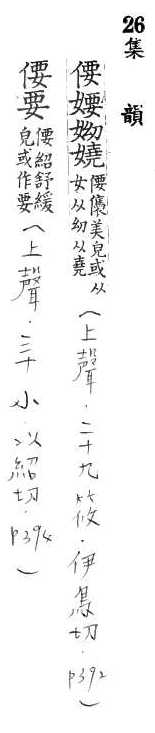 26集 韻
偠㛙㚰嬈偠㒟美皃或从女从幼从堯(上聲.二十九筱.伊鳥切.P392)
偠要偠紹舒緩皃或作要(上聲.三十小.以紹切.P394)